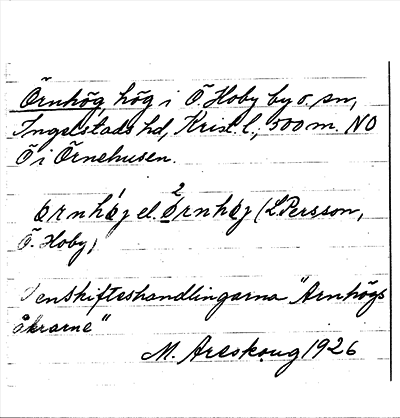 Örnhög, hög i Ö. Hoby by o. sn,
Ingelstads hd, Krist. l., 500 m. NO
Ö i Örnehusen.
ørnhøj el. ²ørnhøj (L. Persson,
Ö. Hoby)
I enskifteshandlingarna "Arnhögs
åkrarne"
M. Areskoug 1926